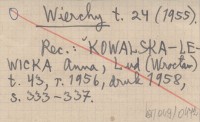 Wierchy t. 24 (1955).
Rec.: KOWALSKA-LE-
WICKA Anna, Lud (Wrocław)
t. 43, r. 1956, druk 1958,
s. 333-337.